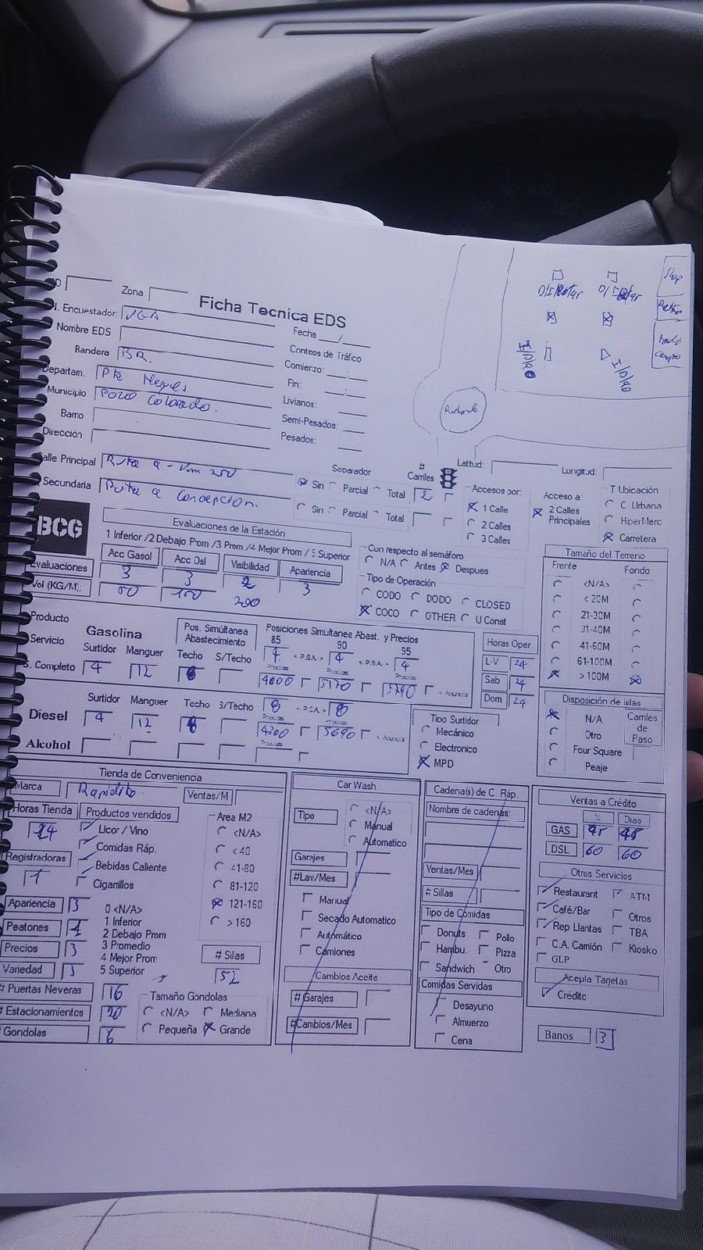 Zona
Ficha Tecnica EDS
Encuestador: VGA
Fecha __/__
Nombre EDS
Conteos de Tráfico
Bandera BR.
Comierzo:
Departam. Pte Hayes
Fin:
Municipio Pozo Colorado.
Livianos:
Barrio
Semi-Pesados:
Dirección
Pesados:
Calle Principal Ruta 9 - Km 250
Secundaria Ruta a Concepcion.
Separador
Sin Parcial Total 2
Sin Parcial Total
# Carriles
Lattud:
Longitud:
Accesos por:
1 Calle
2 Calles
3 Calles
Acceso a:
2 Calles
Principales
T Ubicación
C Urbana
HiperMerc
Carretera
BCG
Evaluaciones de la Estación
1 Inferior /2 Debajo Prom /3 Prom /4 Mejor Prom /5 Superior
Acc Gasol Acc Dsl Visibilidad Apariencia
Evaluaciones 3 3 2 3
Vol (KG/M): 50 150 200
Con respecto al semáforo
N/A Antes Despues
Tipo de Operación
CODO DODO CLOSED
COCO OTHER U Const
Tamaño del Terreno
Frente Fondo
<N/A>
< 20M
21-30M
31-40M
41-60M
61-100M
> 100M
Producto
Servicio
Gasolina
Pos. Simúltanea
Abastecimiento
Posiciones Simultanea Abast. y Precios
85 90 95
Surtidor Manguer Techo S/Techo
S. Completo 4 12 8
4 4 4
4800 5170
Horas Oper
L-V 24
Sab 24
Dom 24
Surtidor Manguer Techo S/Techo
Diesel 4 12 8
8 8
4200 5690
Alcohol
Tipo Surtidor
Mecánico
Electronico
MPD
Disposición de islas
N/A
Otro
Four Square
Peaje
Carriles
de
Paso
Tienda de Conveniencia
Marca Rapidito
Ventas/M
Horas Tienda
24
Registradoras
1
Productos vendidos
Licor / Vino
Comidas Ráp.
Bebidas Caliente
Cigarillos
Area M2
<N/A>
< 40
41-80
81-120
121-160
> 160
Apariencia 3
Peatones
Precios 3
Variedad 3
0 <N/A>
1 Inferior
2 Debajo Prom
3 Promedio
4 Mejor Prom
5 Superior
# Sillas
52
# Puertas Neveras 16
# Estacionamientos 20
# Gondolas 6
Tamaño Gondolas
<N/A> Mediana
Pequeña Grande
Car Wash
Tipo
<N/A>
Manual
Automatico
Garajes
#Lav/Mes
Manual
Secado Automatico
Automático
Camiones
Cambios Aceite
# Garajes
#Cambios/Mes
Cadena(s) de C. Ráp.
Nombre de cadenas:
Ventas/Mes
# Sillas
Tipo de Comidas
Donuts Pollo
Hambu. Pizza
Sandwich Otro
Comidas Servidas
Desayuno
Almuerzo
Cena
Ventas a Crédito
% Dias
GAS 45 45
DSL 60 60
Otros Servicios
Restaurant ATM
Café/Bar Otros
Rep Llantas TBA
C.A. Camión Kiosko
GLP
Acepta Tarjetas
Crédito
Banos 3